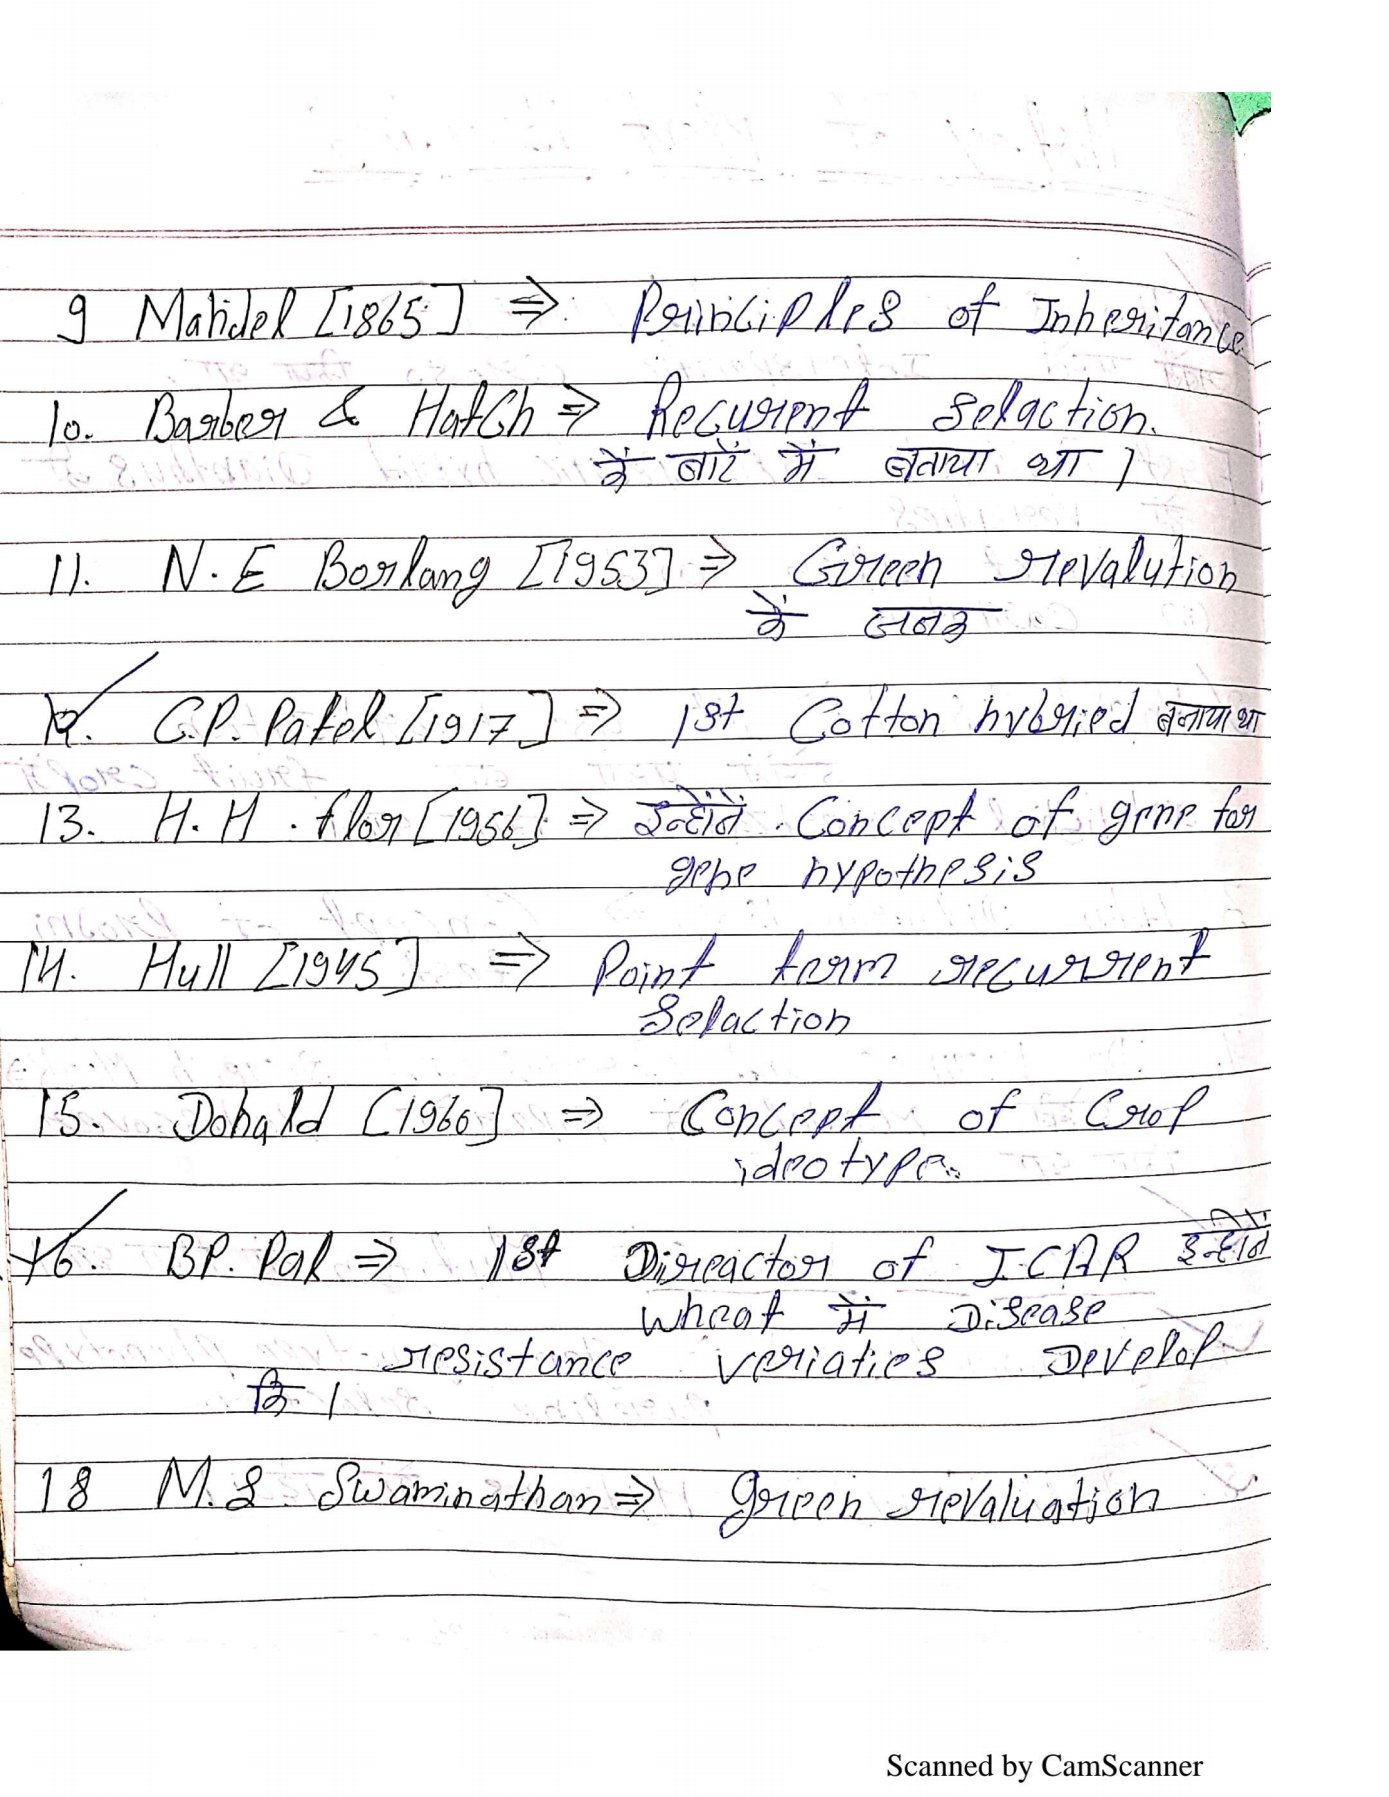 9 Mandel [1865] ⇒ Principles of Inheritance
10. Barber & Hatch ⇒ Recurent Selaction.
के बारें में बताया था ।
11. N.E Borlang [1953] ⇒ Green revalution
के जनक
12. C.P. Patel [1917] ⇒ 1st Cotton hybried बनाया था
13. H.H. flor [1956] ⇒ इन्होंने Concept of gene for
gene hypothesis
14. Hull [1945] ⇒ Point term recurrent
Selaction
15. Donald [1960] ⇒ Concept of Crop
ideotype.
16. BP. Pal ⇒ 1st Direactor of I.CAR इन्होंने
wheat में Disease
resistance veriaties Develop
कि ।
18 M.S. Swaminathan ⇒ green revaluation
Scanned by CamScanner